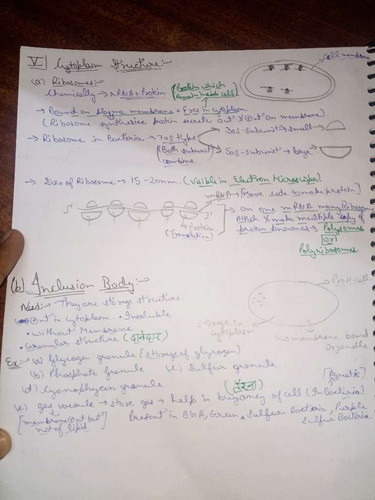 V Cytoplasm Structure:→
Cell membran
(a) Ribosomes:→
Chemically → rRNA + Protein (Protein which Remain inside cell)
→ Bound on plasma membrane + Free in cytoplasm
(Ribosome synthesizes protein on membrane)
→ Ribosome in Bacteria → 70s type
(Both subunit combine
30s-subunit → small →
50s-subunit → large →
→ Size of Ribosome → 15-20nm. (Visible in Electron Microscope)
mRNA → [More side to make protein]
5'
3'
→ Protein
(Translation)
→ on one mRNA many Ribosome
Attach & make multiple copy of
protein known as → Polysomes
or
Polyribosomes
(b) Inclusion Body:→
Prok. cell
Need → They are storage structure
in cytoplasm • Insoluble
• without Membrane
• Granular structure (दानेदार)
Storage in cytoplasm
nonmembrane bound
organelle
Ex:→ (a) Glycogen granule (Storage of glycogen)
(b) Phosphate granule (c) Sulfur granule
(d) Cyanophycean granule
(e) gas vacuole → store gas → help in buoyancy of cell (In Bacteria)
[membrane but not of lipid]
Present in BGA, Green, Sulfur Bacteria, Purple
Sulfur Bacteria